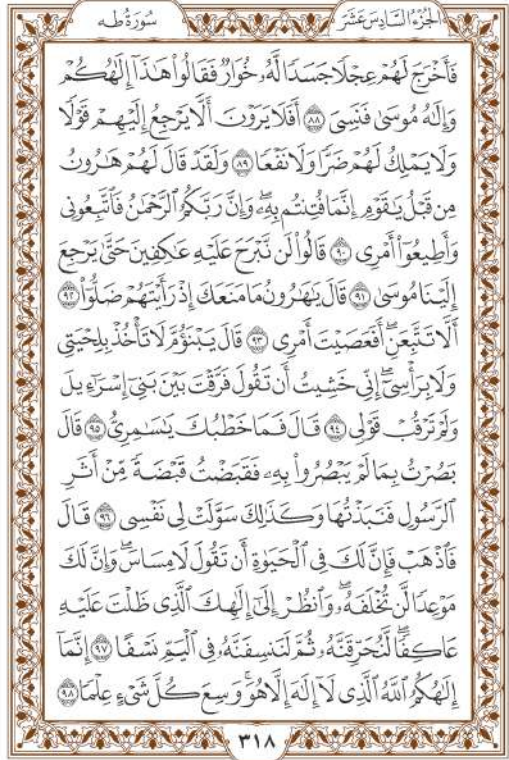 الجُزْءُ السَّادِسَ عَشَرَ
سُورَةُ طه
فَأَخْرَجَ لَهُمْ عِجْلًا جَسَدًا لَّهُۥ خُوَارٌ فَقَالُوا۟ هَٰذَآ إِلَٰهُكُمْ
وَإِلَٰهُ مُوسَىٰ فَنَسِىَ ۝٨٨ أَفَلَا يَرَوْنَ أَلَّا يَرْجِعُ إِلَيْهِمْ قَوْلًا
وَلَا يَمْلِكُ لَهُمْ ضَرًّا وَلَا نَفْعًا ۝٨٩ وَلَقَدْ قَالَ لَهُمْ هَٰرُونُ
مِن قَبْلُ يَٰقَوْمِ إِنَّمَا فُتِنتُم بِهِۦ ۖ وَإِنَّ رَبَّكُمُ ٱلرَّحْمَٰنُ فَٱتَّبِعُونِى
وَأَطِيعُوٓا۟ أَمْرِى ۝٩٠ قَالُوا۟ لَن نَّبْرَحَ عَلَيْهِ عَٰكِفِينَ حَتَّىٰ يَرْجِعَ
إِلَيْنَا مُوسَىٰ ۝٩١ قَالَ يَٰهَٰرُونُ مَا مَنَعَكَ إِذْ رَأَيْتَهُمْ ضَلُّوٓا۟ ۝٩٢
أَلَّا تَتَّبِعَنِ ۖ أَفَعَصَيْتَ أَمْرِى ۝٩٣ قَالَ يَبْنَؤُمَّ لَا تَأْخُذْ بِلِحْيَتِى
وَلَا بِرَأْسِىٓ ۖ إِنِّى خَشِيتُ أَن تَقُولَ فَرَّقْتَ بَيْنَ بَنِىٓ إِسْرَٰٓءِيلَ
وَلَمْ تَرْقُبْ قَوْلِى ۝٩٤ قَالَ فَمَا خَطْبُكَ يَٰسَٰمِرِىُّ ۝٩٥ قَالَ
بَصُرْتُ بِمَا لَمْ يَبْصُرُوا۟ بِهِۦ فَقَبَضْتُ قَبْضَةً مِّنْ أَثَرِ
ٱلرَّسُولِ فَنَبَذْتُهَا وَكَذَٰلِكَ سَوَّلَتْ لِى نَفْسِى ۝٩٦ قَالَ
فَٱذْهَبْ فَإِنَّ لَكَ فِى ٱلْحَيَوٰةِ أَن تَقُولَ لَا مِسَاسَ ۖ وَإِنَّ لَكَ
مَوْعِدًا لَّن تُخْلَفَهُۥ ۖ وَٱنظُرْ إِلَىٰٓ إِلَٰهِكَ ٱلَّذِى ظَلْتَ عَلَيْهِ
عَاكِفًا ۖ لَّنُحَرِّقَنَّهُۥ ثُمَّ لَنَنسِفَنَّهُۥ فِى ٱلْيَمِّ نَسْفًا ۝٩٧ إِنَّمَآ
إِلَٰهُكُمُ ٱللَّهُ ٱلَّذِى لَآ إِلَٰهَ إِلَّا هُوَ ۚ وَسِعَ كُلَّ شَىْءٍ عِلْمًا ۝٩٨
٣١٨